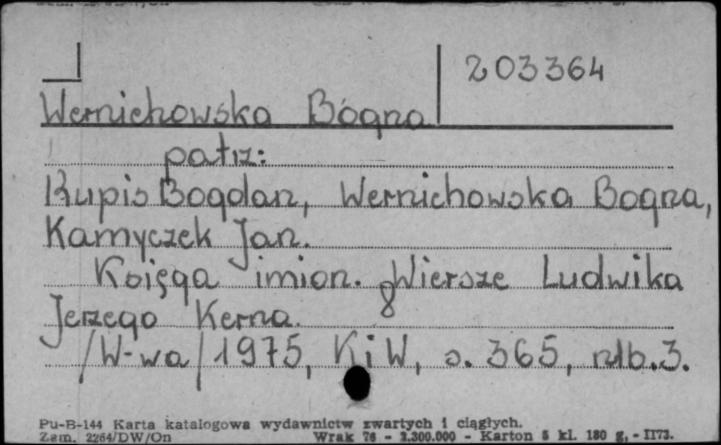 203364
Wernichowska Bogna
patrz:
Kupis Bogdan, Wernichowska Bogna,
Kamyczek Jan.
Księga imion. Wiersze Ludwika
Jerzego Kerna.
/W-wa/1975, KiW, s. 365, nlb.3.
Pu-B-144 Karta katalogowa wydawnictw zwartych i ciągłych.
Zam. 2264/DW/On Wrak 76 - 2.300.000 - Karton 5 kl. 180 g. - II73.